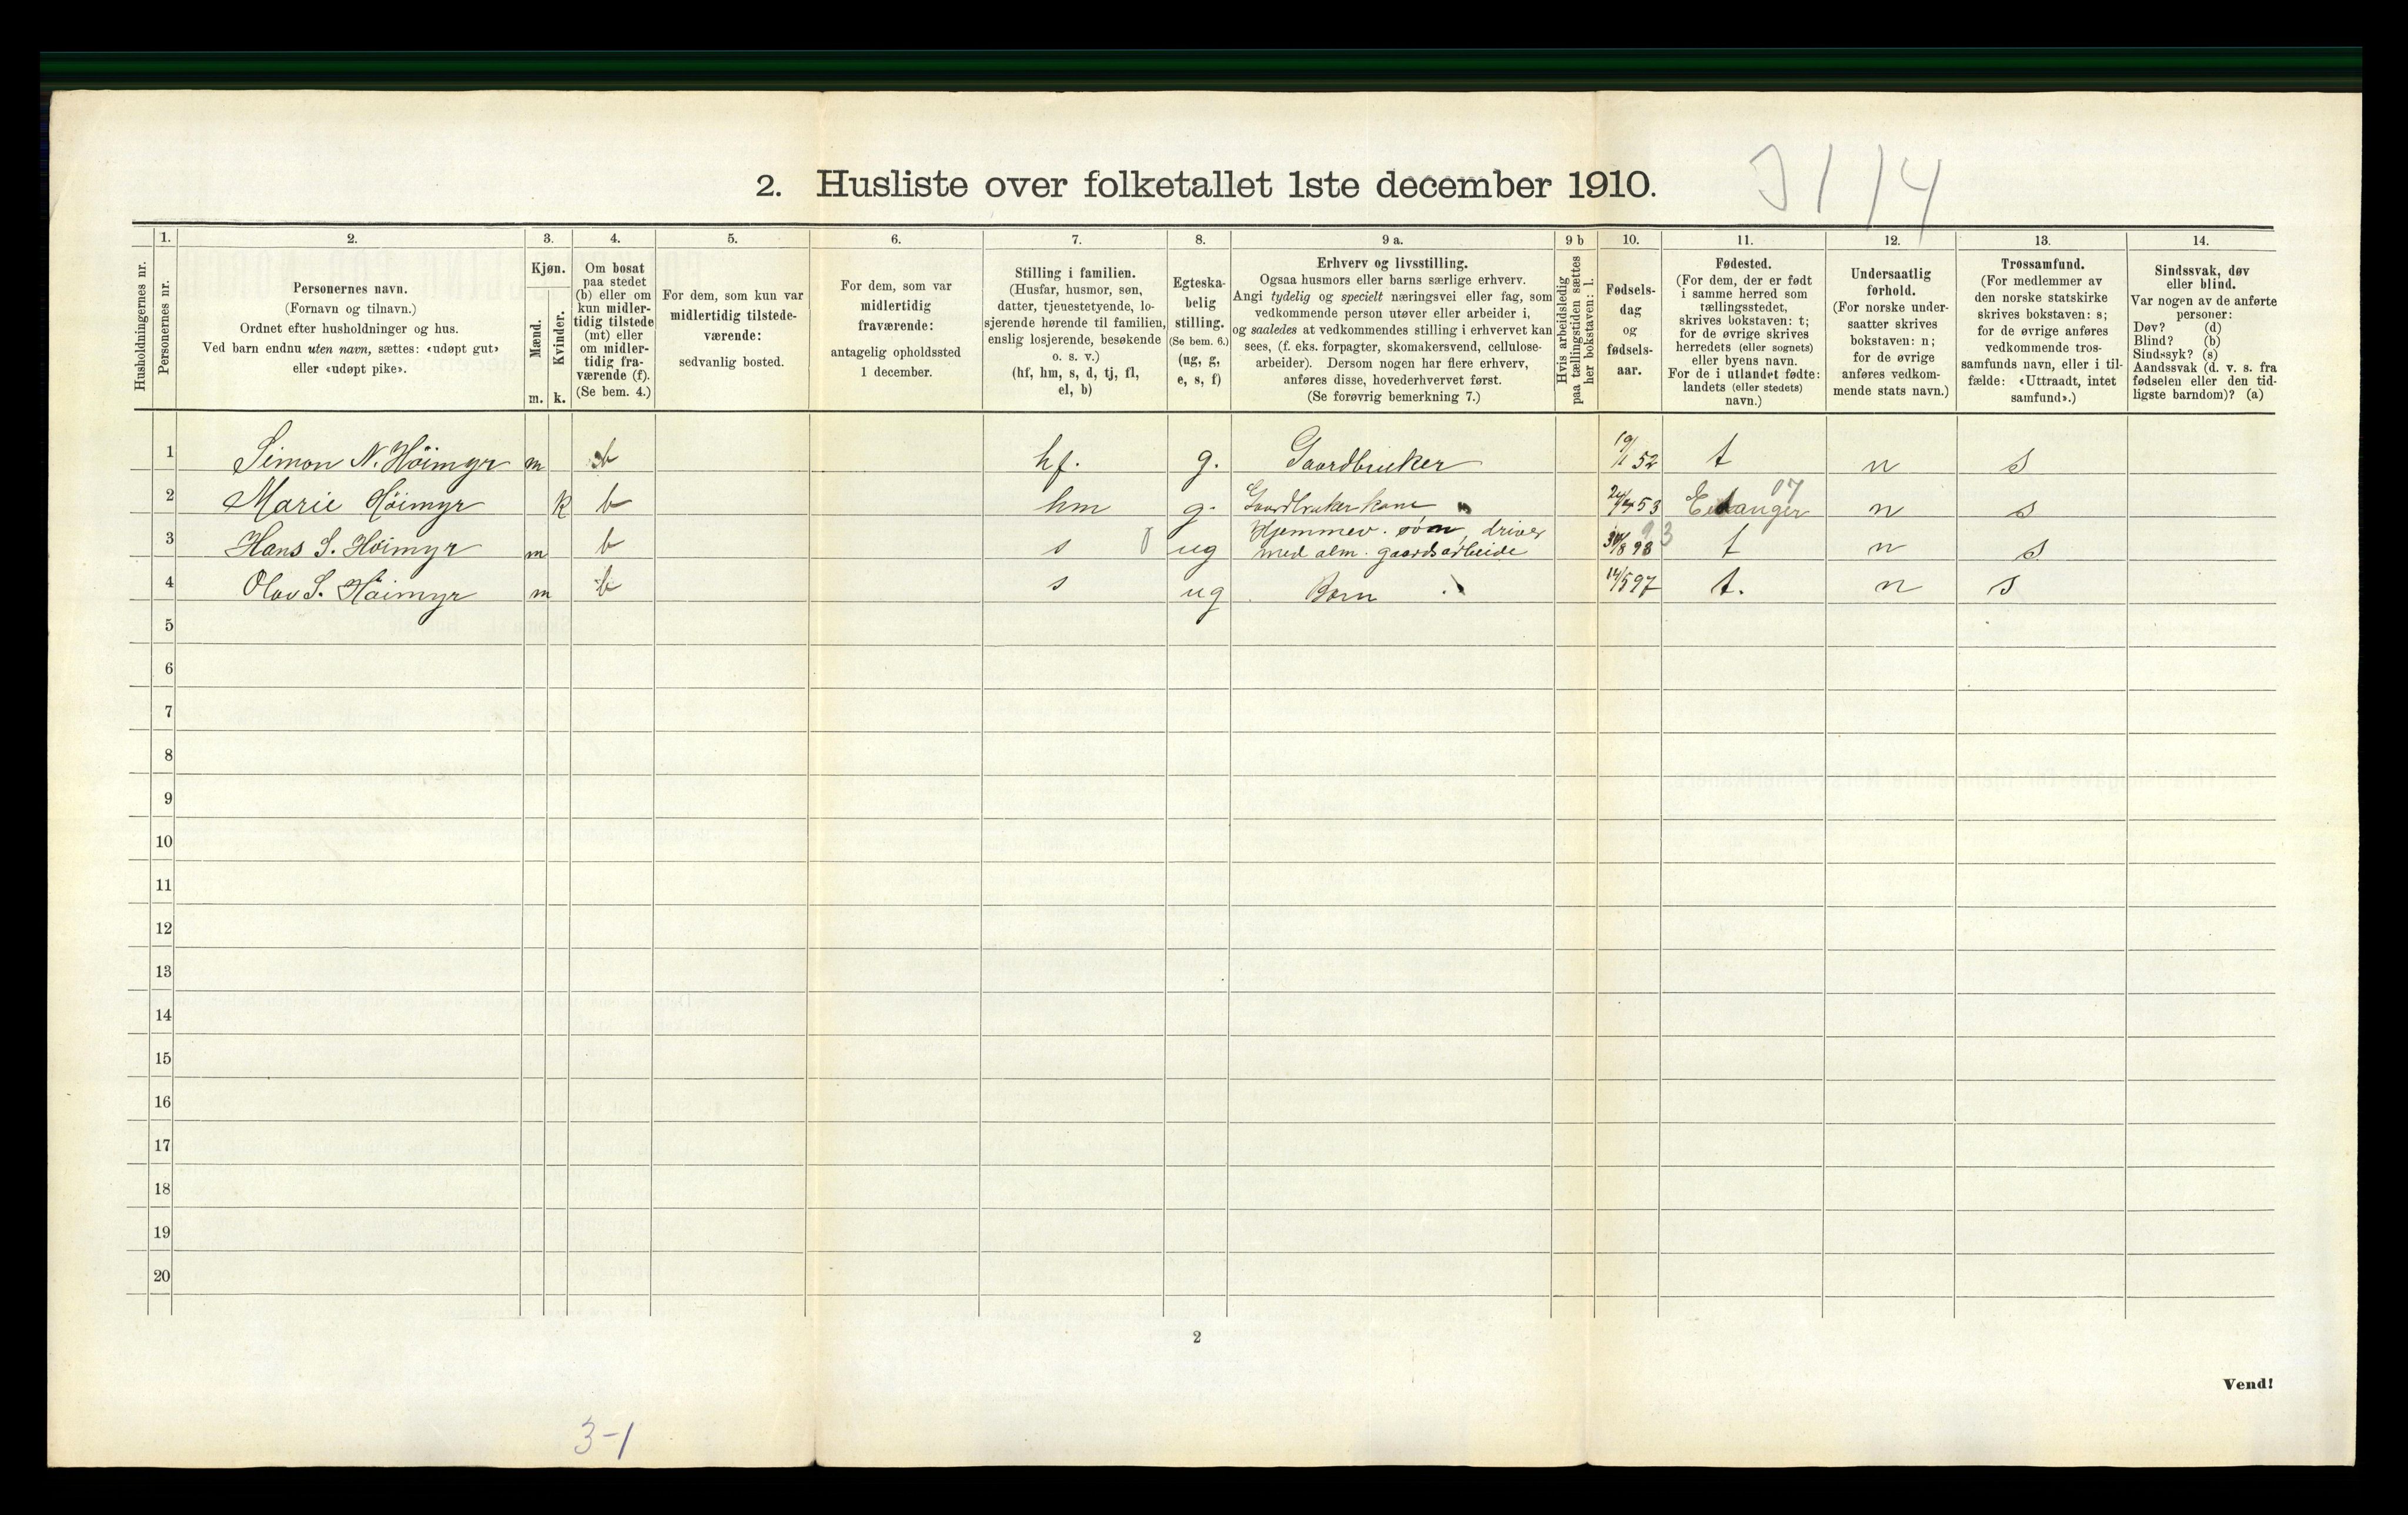 2. Husliste over folketallet 1ste december 1910.
1. 2. 3. 4. 5. 6. 7. 8. 9 a. 9 b 10. 11. 12. 13. 14.
Husholdningernes nr.
Personernes nr.
Personernes navn.
(Fornavn og tilnavn.)
Ordnet efter husholdninger og hus.
Ved barn endnu uten navn, sættes: «udøpt gut»
eller «udøpt pike».
Kjøn.
Mænd.
Kvinder.
m. k.
Om bosat
paa stedet
(b) eller om
kun midler-
tidig tilstede
(mt) eller
om midler-
tidig fra-
værende (f).
(Se bem. 4.)
For dem, som kun var
midlertidig tilstede-
værende:
sedvanlig bosted.
For dem, som var
midlertidig
fraværende:
antagelig opholdssted
1 december.
Stilling i familien.
(Husfar, husmor, søn,
datter, tjenestetyende, lo-
sjerende hørende til familien,
enslig losjerende, besøkende
o. s. v.)
(hf, hm, s, d, tj, fl,
el, b)
Egteska-
belig
stilling.
(Se bem. 6.)
(ug, g,
e, s, f)
Erhverv og livsstilling.
Ogsaa husmors eller barns særlige erhverv.
Angi tydelig og specielt næringsvei eller fag, som
vedkommende person utøver eller arbeider i,
og saaledes at vedkommendes stilling i erhvervet kan
sees, (f. eks. forpagter, skomakersvend, cellulose-
arbeider). Dersom nogen har flere erhverv,
anføres disse, hovederhvervet først.
(Se forøvrig bemerkning 7.)
Hvis arbeidsledig
paa tællingstiden sættes
her bokstaven: l.
Fødsels-
dag
og
fødsels-
aar.
Fødested.
(For dem, der er født
i samme herred som
tællingsstedet,
skrives bokstaven: t;
for de øvrige skrives
herredets (eller sognets)
eller byens navn.
For de i utlandet fødte:
landets (eller stedets)
navn.)
Undersaatlig
forhold.
(For norske under-
saatter skrives
bokstaven: n;
for de øvrige
anføres vedkom-
mende stats navn.)
Trossamfund.
(For medlemmer av
den norske statskirke
skrives bokstaven: s;
for de øvrige anføres
vedkommende tros-
samfunds navn, eller i til-
fælde: «Uttraadt, intet
samfund».)
Sindssvak, døv
eller blind.
Var nogen av de anførte
personer:
Døv? (d)
Blind? (b)
Sindssyk? (s)
Aandssvak (d. v. s. fra
fødselen eller den tid-
ligste barndom)? (a)
1 Simon N. Höimyr m b hf. g. Gaardbruker 19/1 52 t n s
2 Marie Höimyr k b hm g. Gaardbrukerkone 24/4 53 Eidanger 07 n s
3 Hans S. Höimyr m b s ug Hjemmev. søn, driver
med alm. gaardsarbeide 93 t n s
4 Olav S. Höimyr m b s ug Barn 14/5 97 t. n s
5
6
7
8
9
10
11
12
13
14
15
16
17
18
19
20
2
Vend!
3-1